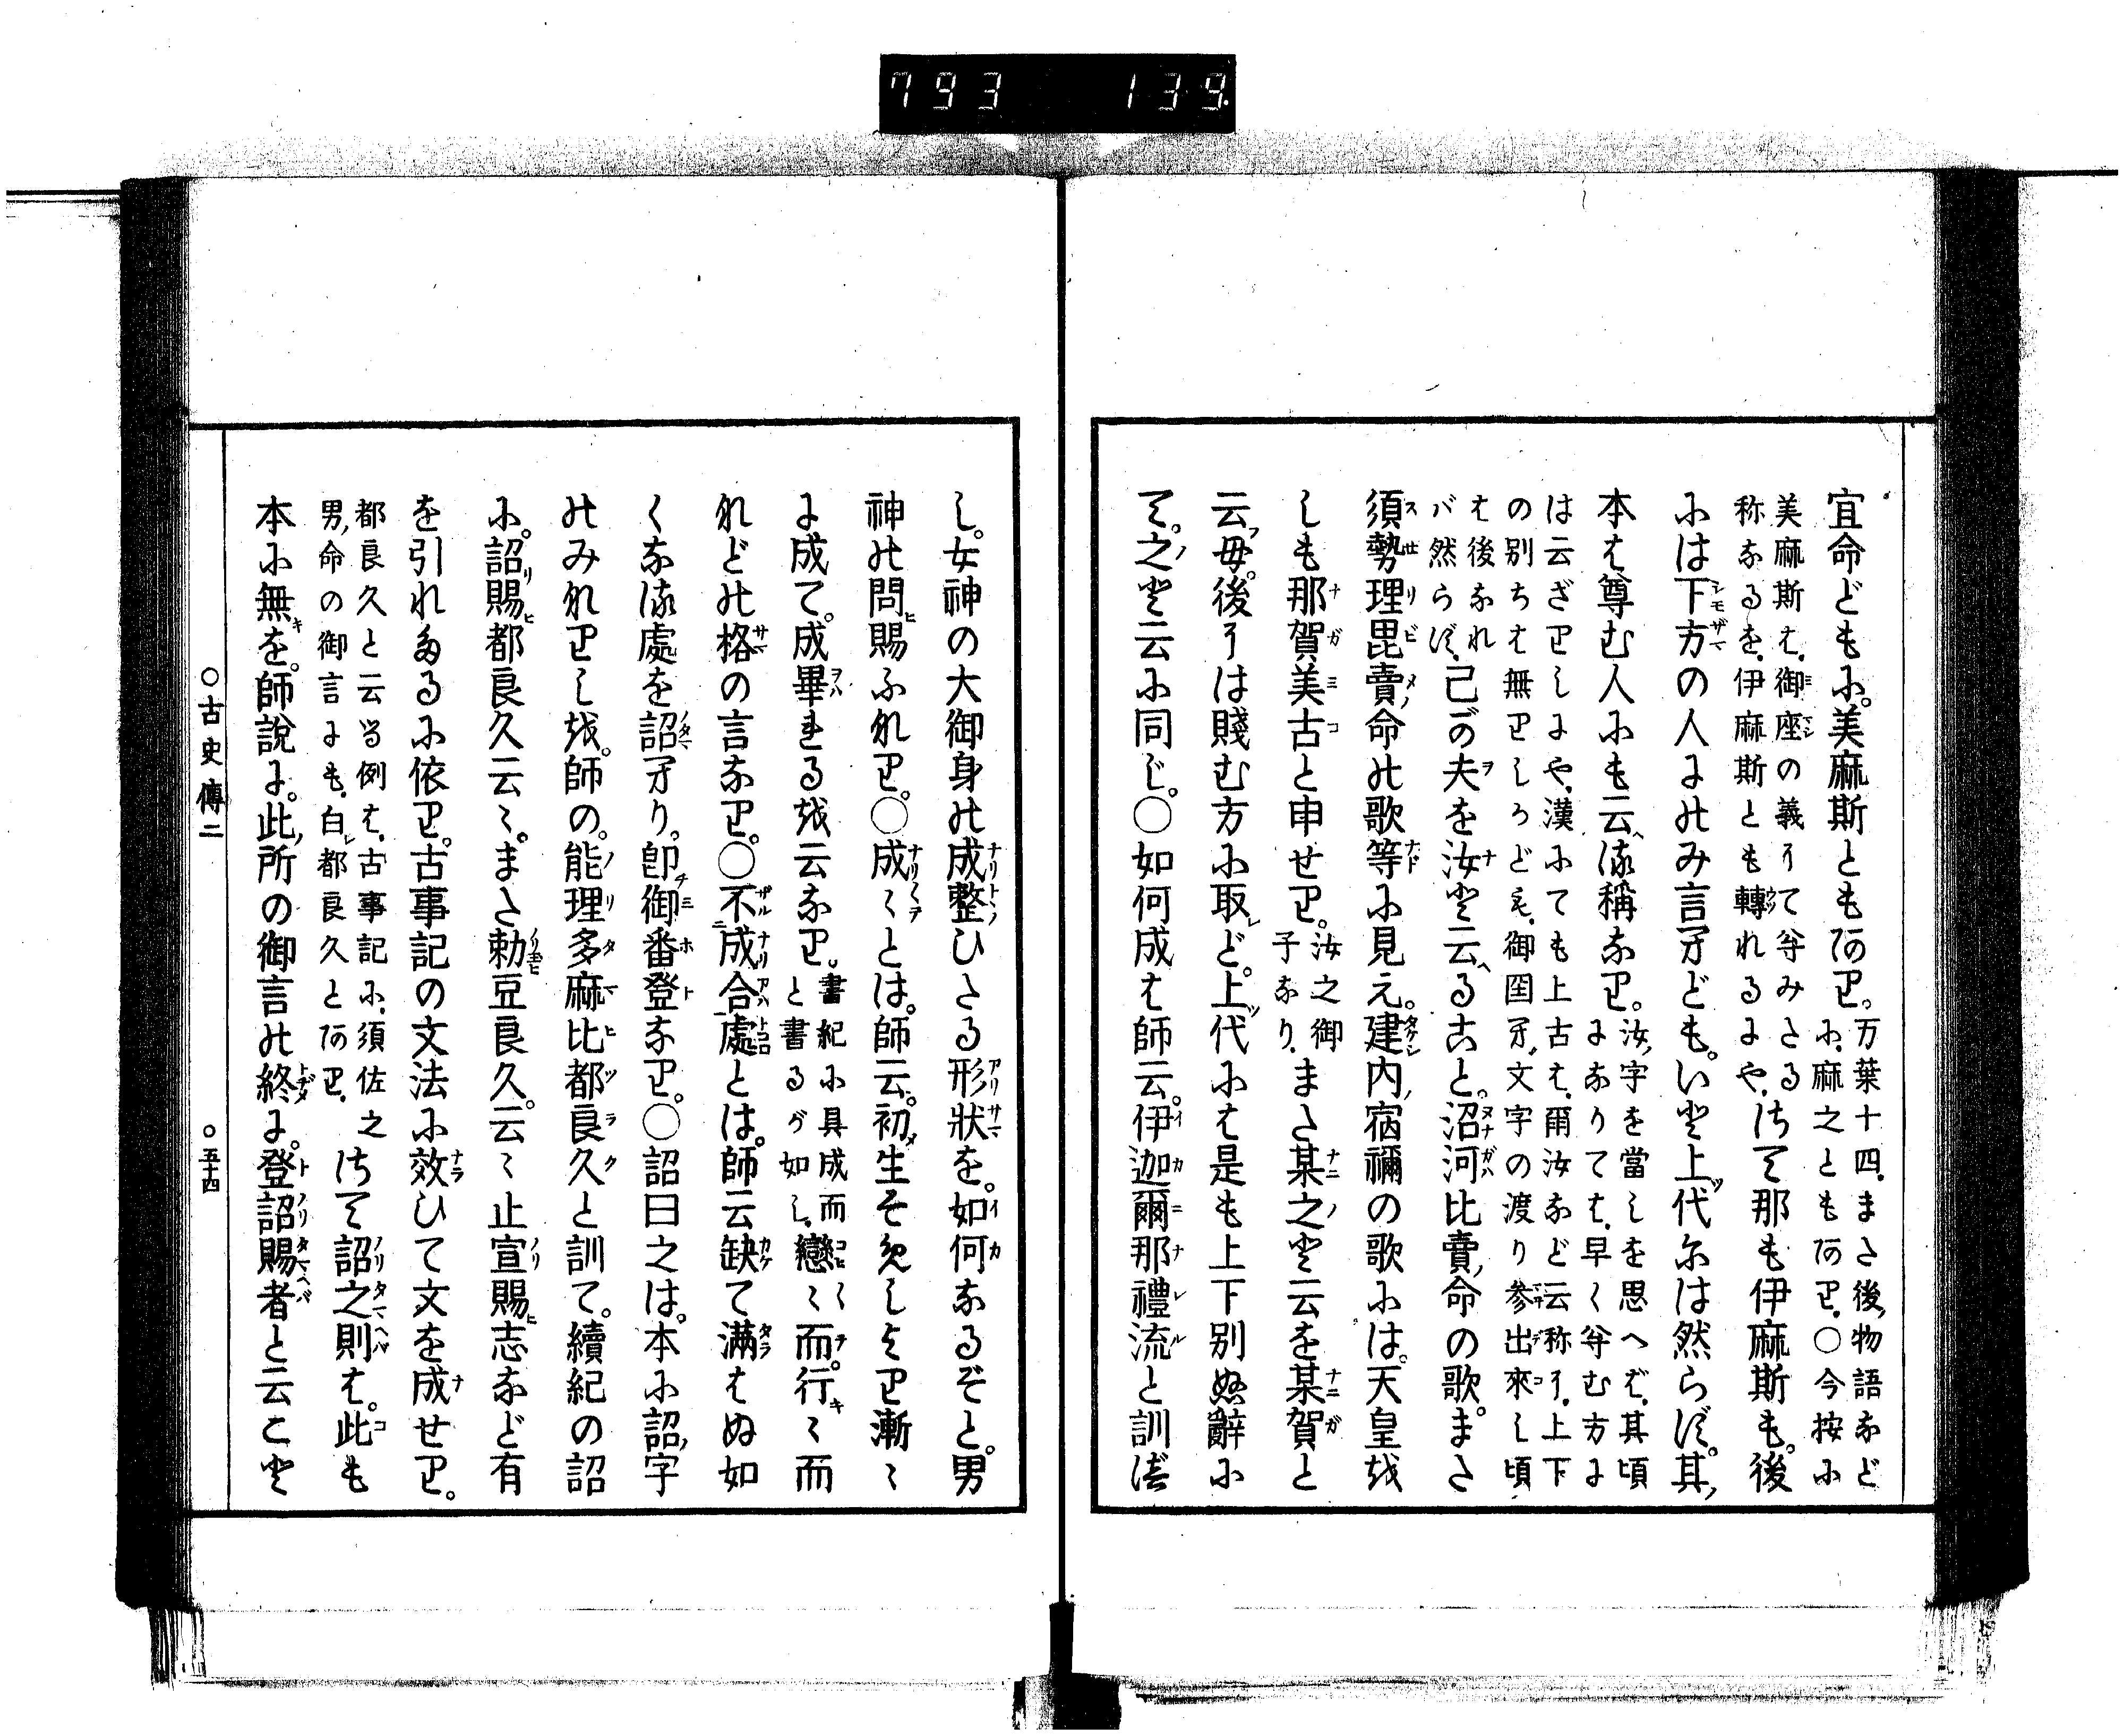 793 139
宜命どもに。美麻斯ともあり。万葉十四、また後、物語など
に、麻之ともあり、○今按に
美麻斯は、御座の義にて、尊みたる
称なるを、伊麻斯とも轉れるにや、さて那も伊麻斯も。後
には下方の人にのみ言へども。いと上代には然らず。其、
本は尊む人にも云へる稱なり。汝、字を當しを思へば、其頃
になりては、早く尊む方に
は云ざりしにや、漢にても上古は、爾汝など云称に、上下
の別ちは無りしかども、御国へ、文字の渡り参出來し頃
は後なれ
バ然らず、己が夫を汝と云へること。沼河比賣、命の歌。また
須勢理毘賣命の歌等に見え。建内、宿禰の歌には。天皇を
しも那賀美古と申せり。汝之御
子なり、また某之と云を某賀と
云フ毋。後には賤む方に取レど。上ツ代には是も上下別ぬ辭に
て。之と云に同じ。○如何成は師云。伊迦爾那禮流と訓べ
し。女神の大御身の成整ひたる形狀を。如何なるぞと。男
神の問賜ふなり。○成々とは。師云。初生そめしより漸々
に成て。成畢れるを云なり。書紀に具成而
と書るが如し、戀々而。行々而
などの格の言なり。○不成合處とは。師云缺て滿はぬ如
くなる處を詔へり。卽御番登なり。○詔曰之は。本に詔、字
のみなりしを。師の。能理多麻比都良久と訓て。續紀の詔
に。詔賜都良久云々。また勅豆良久。云々止宣賜志など有
を引れたるに依り。古事記の文法に效ひて文を成せり。
都良久と云る例は、古事記に、須佐之
男、命の御言にも、白都良久とあり、さて詔之則は。此も
本に無を。師說に。此、所の御言の終に。登詔賜者と云こと
○古史傳二 ○五十四